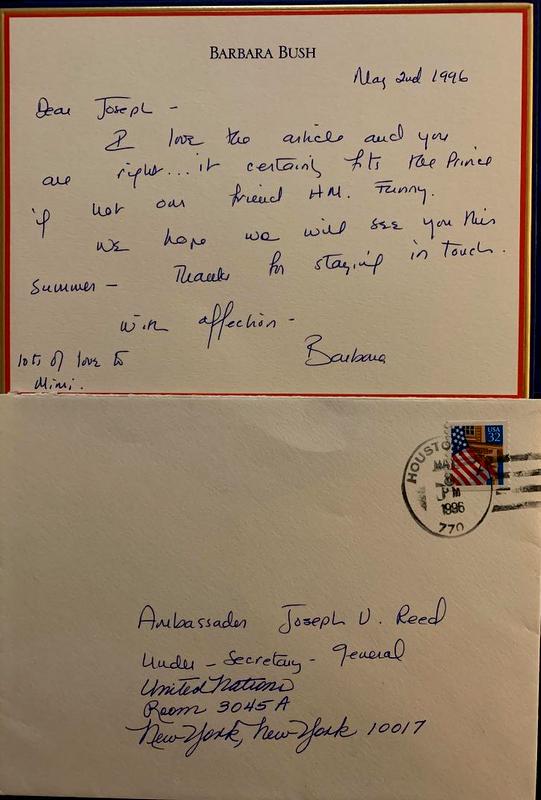 BARBARA BUSH
May 2nd 1996
Dear Joseph -
I love the article and you
are right... it certainly fits the Prince
if not our friend HM. Funny.
We hope we will see you this
summer - Thanks for staying in touch.
with affection -
Barbara
lots of love to
Mimi.
USA
32
HOUSTON
MAY
PM
1996
770
Ambassador Joseph V. Reed
Under-Secretary-General
United Nations
Room 3045A
New York, New York 10017